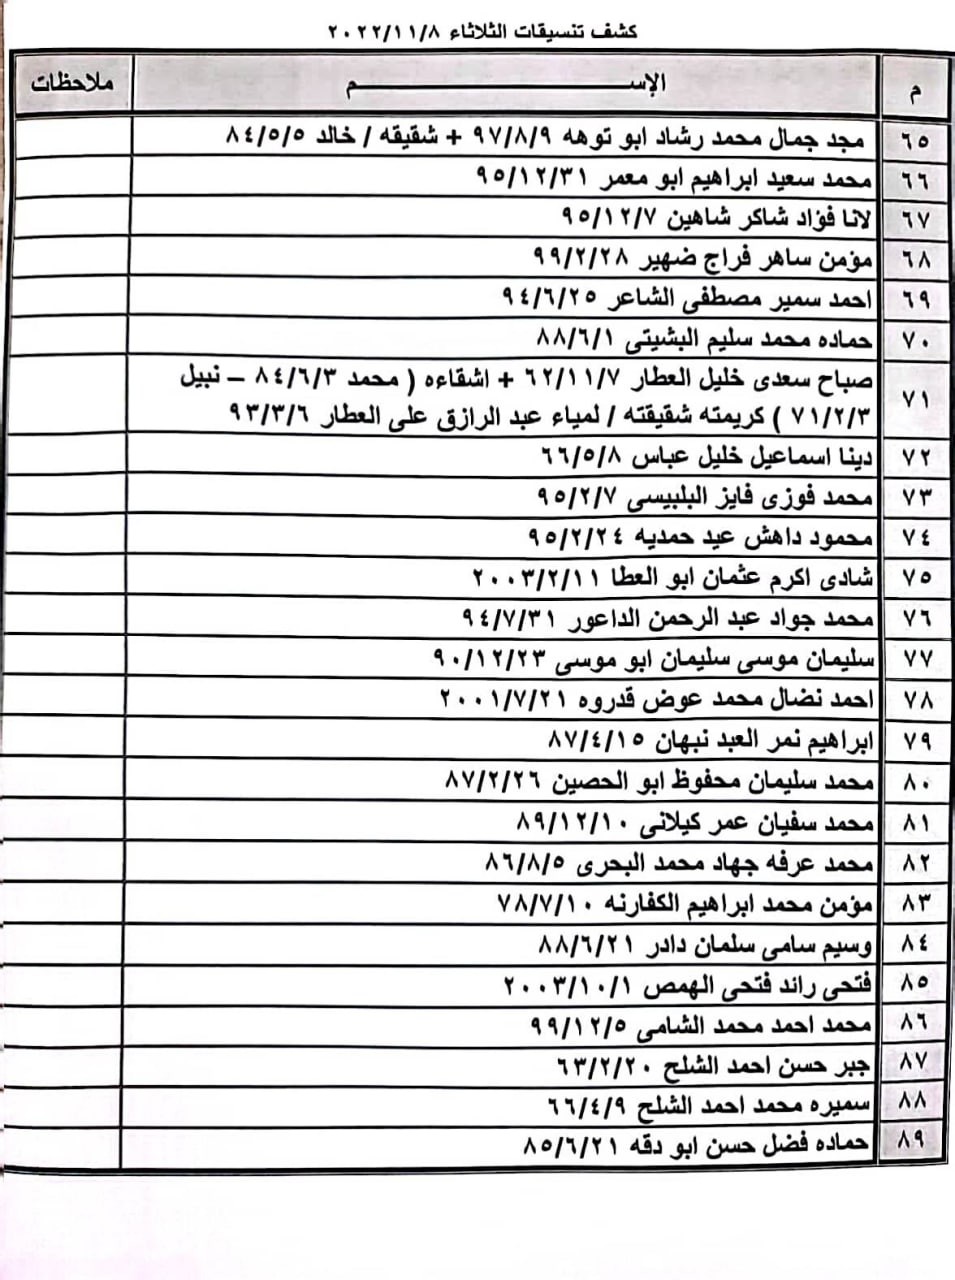 كشف تنسيقات الثلاثاء ٢٠٢٢/١١/٨
م الإســـــــــــــــــم ملاحظات
٦٥ مجد جمال محمد رشاد ابو توهه ٩٧/٨/٩ + شقيقه / خالد ٨٤/٥/٥
٦٦ محمد سعيد ابراهيم ابو معمر ٩٥/١٢/٣١
٦٧ لانا فؤاد شاكر شاهين ٩٥/١٢/٧
٦٨ مؤمن ساهر فراج ضهير ٩٩/٢/٢٨
٦٩ احمد سمير مصطفى الشاعر ٩٤/٦/٢٥
٧٠ حماده محمد سليم البشيتى ٨٨/٦/١
٧١ صباح سعدى خليل العطار ٦٢/١١/٧ + اشقاءه ( محمد ٨٤/٦/٣ – نبيل
٧١/٢/٣ ) كريمته شقيقته / لمياء عبد الرازق على العطار ٩٣/٣/٦
٧٢ دينا اسماعيل خليل عباس ٦٦/٥/٨
٧٣ محمد فوزى فايز البلبيسى ٩٥/٢/٧
٧٤ محمود داهش عيد حمديه ٩٥/٢/٢٤
٧٥ شادى اكرم عثمان ابو العطا ٢٠٠٣/٢/١١
٧٦ محمد جواد عبد الرحمن الداعور ٩٤/٧/٣١
٧٧ سليمان موسى سليمان ابو موسى ٩٠/١٢/٢٣
٧٨ احمد نضال محمد عوض قدروه ٢٠٠١/٧/٢١
٧٩ ابراهيم نمر العبد نبهان ٨٧/٤/١٥
٨٠ محمد سليمان محفوظ ابو الحصين ٨٧/٢/٢٦
٨١ محمد سفيان عمر كيلانى ٨٩/١٢/١٠
٨٢ محمد عرفه جهاد محمد البحرى ٨٦/٨/٥
٨٣ مؤمن محمد ابراهيم الكفارنه ٧٨/٧/١٠
٨٤ وسيم سامى سلمان دادر ٨٨/٦/٢١
٨٥ فتحى رائد فتحى الهمص ٢٠٠٣/١٠/١
٨٦ محمد احمد محمد الشامى ٩٩/١٢/٥
٨٧ جبر حسن احمد الشلح ٦٣/٢/٢٠
٨٨ سميره محمد احمد الشلح ٦٦/٤/٩
٨٩ حماده فضل حسن ابو دقه ٨٥/٦/٢١